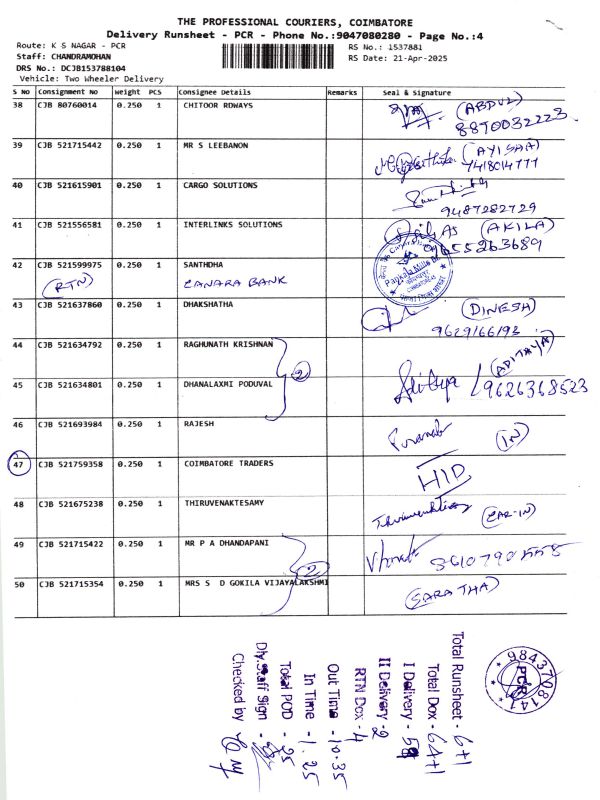 THE PROFESSIONAL COURIERS, COIMBATORE
Delivery Runsheet - PCR - Phone No.:9047080280 - Page No.:4
Route: K S NAGAR - PCR
Staff: CHANDRAMOHAN
DRS No.: DCJB153788104
Vehicle: Two Wheeler Delivery
RS No.: 1537881
RS Date: 21-Apr-2025
S No Consignment No Weight PCS Consignee Details Remarks Seal & Signature
38 CJB 80760014 0.250 1 CHITOOR RDWAYS (ABDUL)
8870032223
39 CJB 521715442 0.250 1 MR S LEEBANON (AYISAA)
7418014777
40 CJB 521615901 0.250 1 CARGO SOLUTIONS
9487282729
41 CJB 521556581 0.250 1 INTERLINKS SOLUTIONS (AKILA)
9655263689
42 CJB 521599975 0.250 1 SANTHDHA
(RTN) CANARA BANK
43 CJB 521637860 0.250 1 DHAKSHATHA (DINESH)
9629166193
44 CJB 521634792 0.250 1 RAGHUNATH KRISHNAN (ADITAYA)
2
45 CJB 521634801 0.250 1 DHANALAXMI PODUVAL Adithya 9626368523
46 CJB 521693984 0.250 1 RAJESH (IN)
47 CJB 521759358 0.250 1 COIMBATORE TRADERS HID
48 CJB 521675238 0.250 1 THIRUVENAKTESAMY
49 CJB 521715422 0.250 1 MR P A DHANDAPANI
2
50 CJB 521715354 0.250 1 MRS S D GOKILA VIJAYALAKSHMI (SARATHA)
Total Runsheet - 6+1
Total Dox - 64+1
I Delivery -
II Delivery - 2
RTN Dox - 4
Out Time - 10.35
In Time - 1.25
Total POD - 25
Dly.Staff Sign -
Checked by
9843708147
PCR